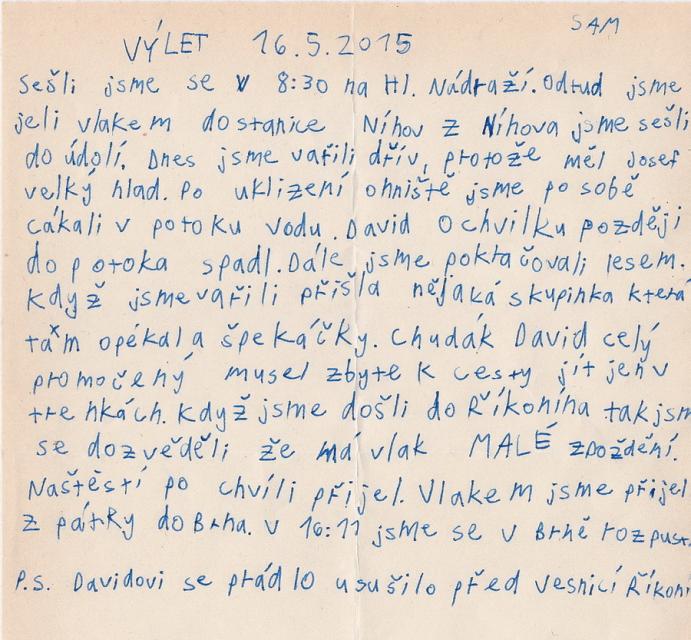 SAM
VÝLET 16.5.2015
Sešli jsme se v 8:30 na Hl. Nádraží. Odtud jsme
jeli vlakem do stanice Níhov z Níhova jsme sešli
do údolí. Dnes jsme vařili dřív, protože měl Josef
velký hlad. Po uklizení ohniště jsme po sobě
cákali v potoku vodu. David o chvilku později
do potoka spadl. Dále jsme poktačovali lesem.
Když jsme vařili přišla nějaká skupinka která
tam opékala špekáčky. Chudák David celý
promočený musel zbytek cesty jít jen v
trenkách. Když jsme došli do Říkonína tak jsm
se dozvěděli že má vlak MALÉ zpoždění.
Naštěstí po chvíli přijel. Vlakem jsme přijel
z pátky do Brna. V 16:11 jsme se v Brně rozpust
P.S. Davidovi se prádlo usušilo před vesnicí Říkoni